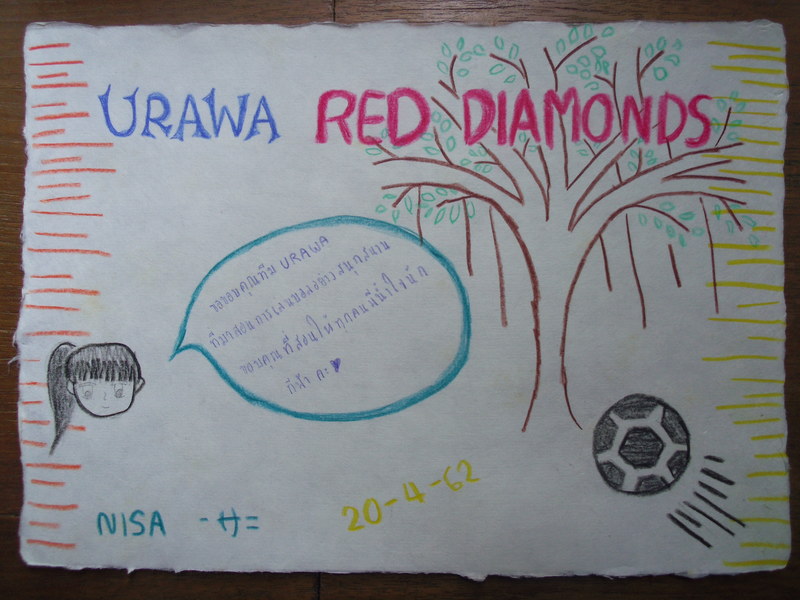 URAWA RED DIAMONDS
ขอขอบคุณทีม URAWA
ที่มาสอนการเล่นบอลอย่างสนุกสนาน
ขอบคุณที่สอนให้ทุกคนมีน้ำใจนัก
กีฬา คะ ♥
NISA -サ=
20-4-62